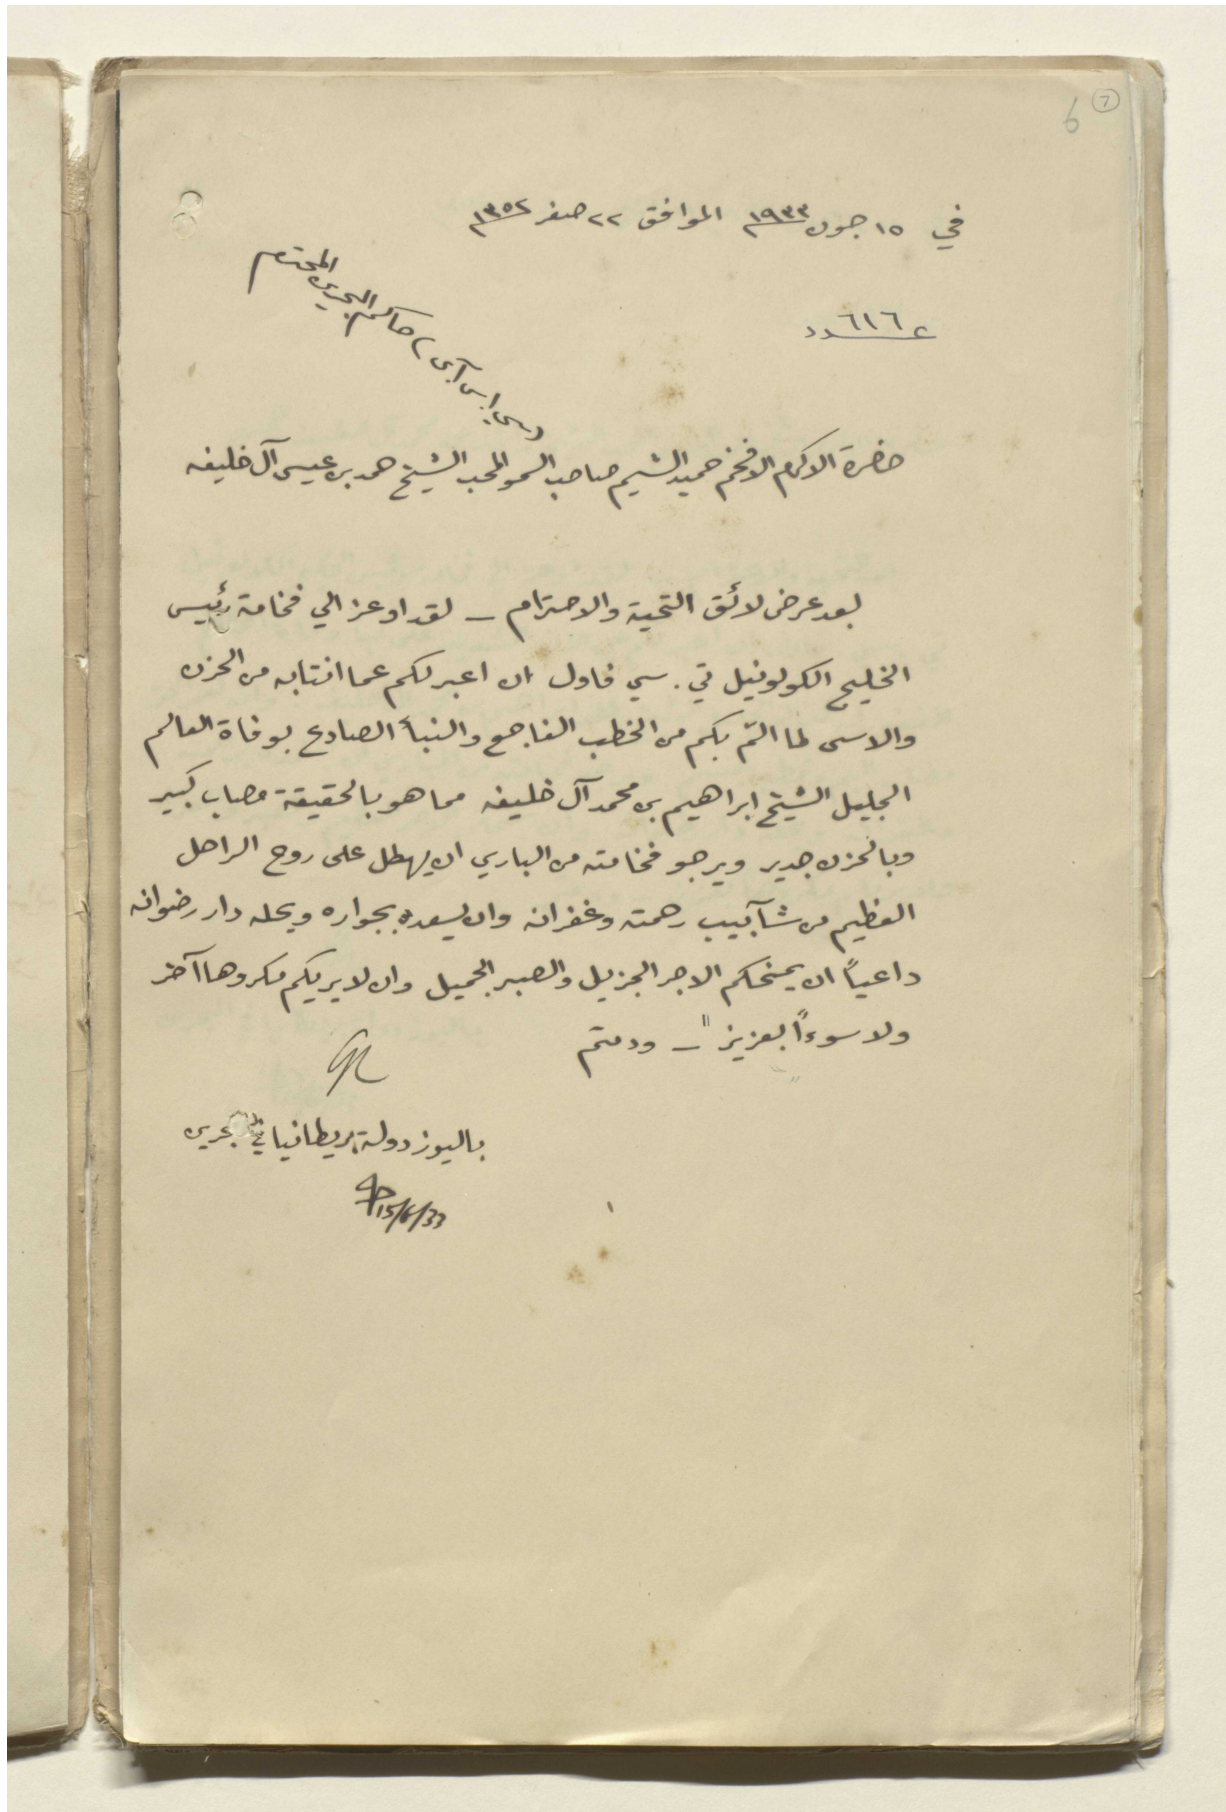 6 7
في ١٥ جون ١٩٣٣ الموافق ٢٢ صفر ١٣٥٢
عدد ٦١٦
حضرة الاكرم الافخم حميد الشيم صاحب السمو المحب الشيخ حمد بن عيسى آل خليفه
(سي. اس. آي) حاكم البحرين المحترم
بعد عرض لائق التحية والاحترام – لقد اوعز الي فخامة رئيس
الخليج الكولونيل تي. سي فاول ان اعبر لكم عما انتابه من الحزن
والاسى لما المّ بكم من الخطب الفاجع والنبأ الصادع بوفاة العالم
الجليل الشيخ ابراهيم بن محمد آل خليفه مما هو بالحقيقة مصاب كبير
وبالحزن جدير ويرجو فخامته من الباري ان يهطل على روح الراحل
العظيم من شآبيب رحمته وغفرانه وان يسعده بجواره ويحله دار رضوانه
داعياً ان يمنحكم الاجر الجزيل والصبر الجميل وان لا يريكم مكروها آخر
ولا سوءاً بعزيز" – ودمتم
باليوز دولة بريطانيا في بحرين
15/6/33